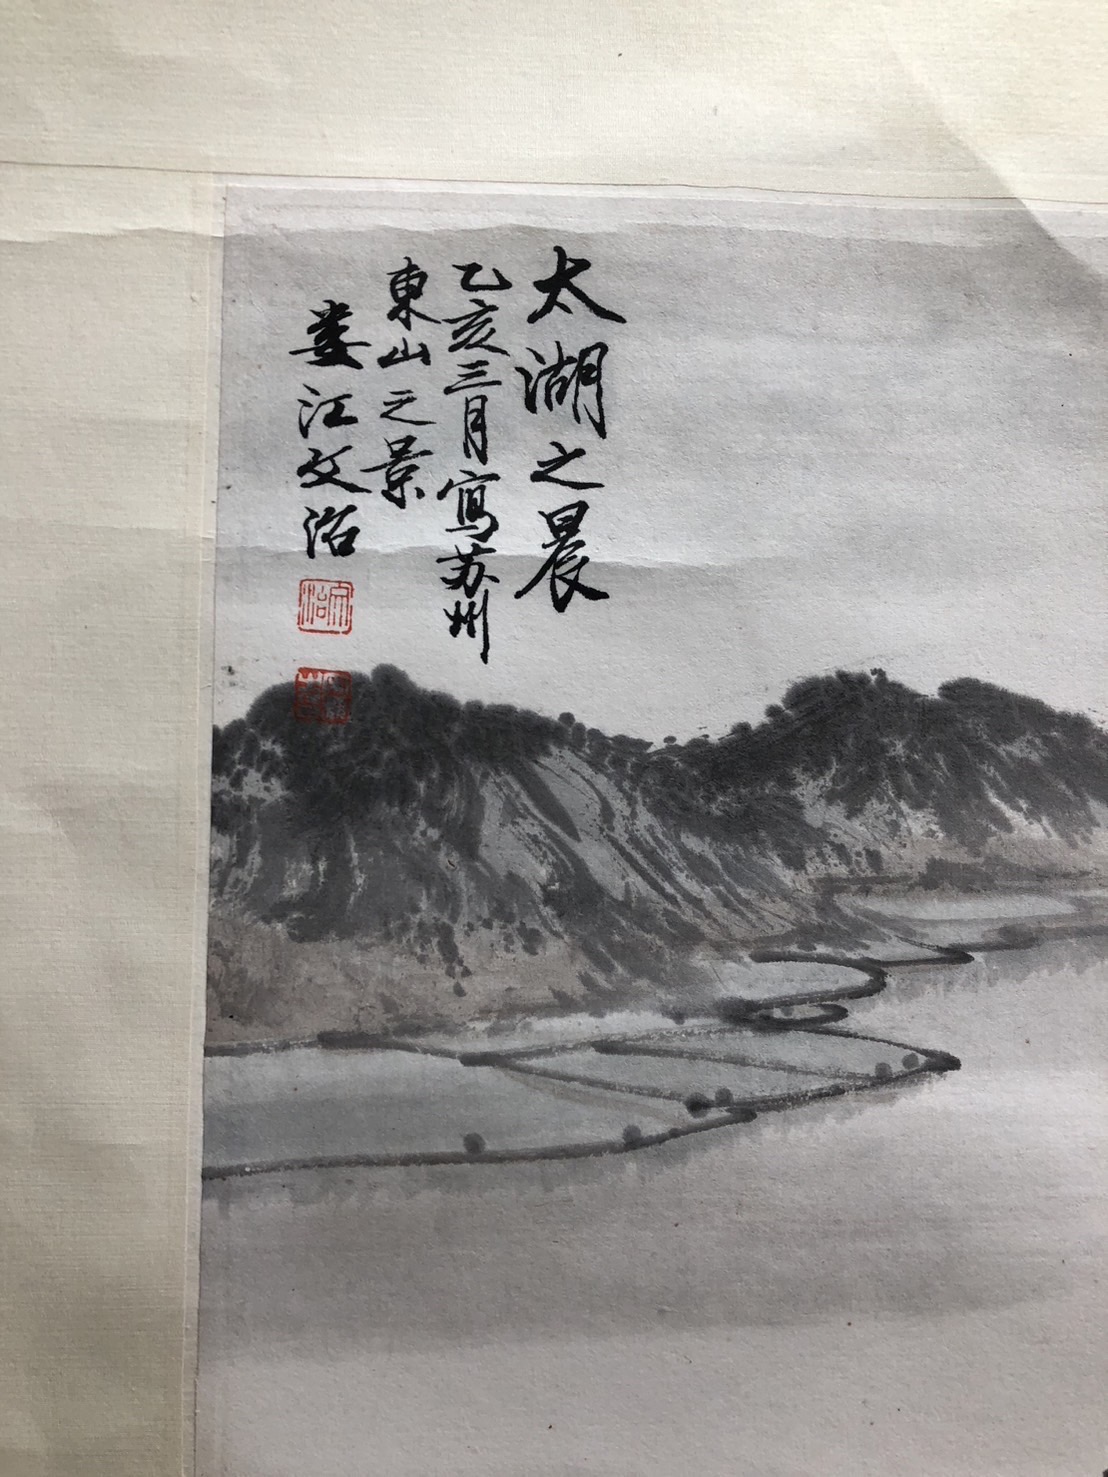 太湖之晨
乙亥三月寫苏州
東山之景
娄江文治